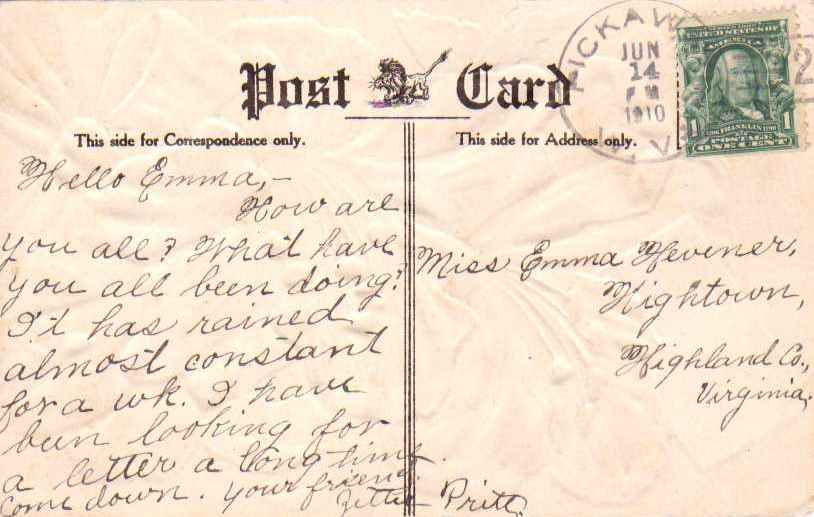 Post Card
This side for Correspondence only.
This side for Address only.
PICKAWA
JUN
14
P M
1910
W. VA
2
UNITED STATES OF
AMERICA
FRANKLIN
1 1
POSTAGE
ONE CENT
Hello Emma,-
How are
you all? What have
you all been doing?
It has rained
almost constant
for a wk. I have
been looking for
a letter a long time.
Come down. Your friend.
Zettie Pritt.
Miss Emma Hevener,
Hightown,
Highland Co.,
Virginia.